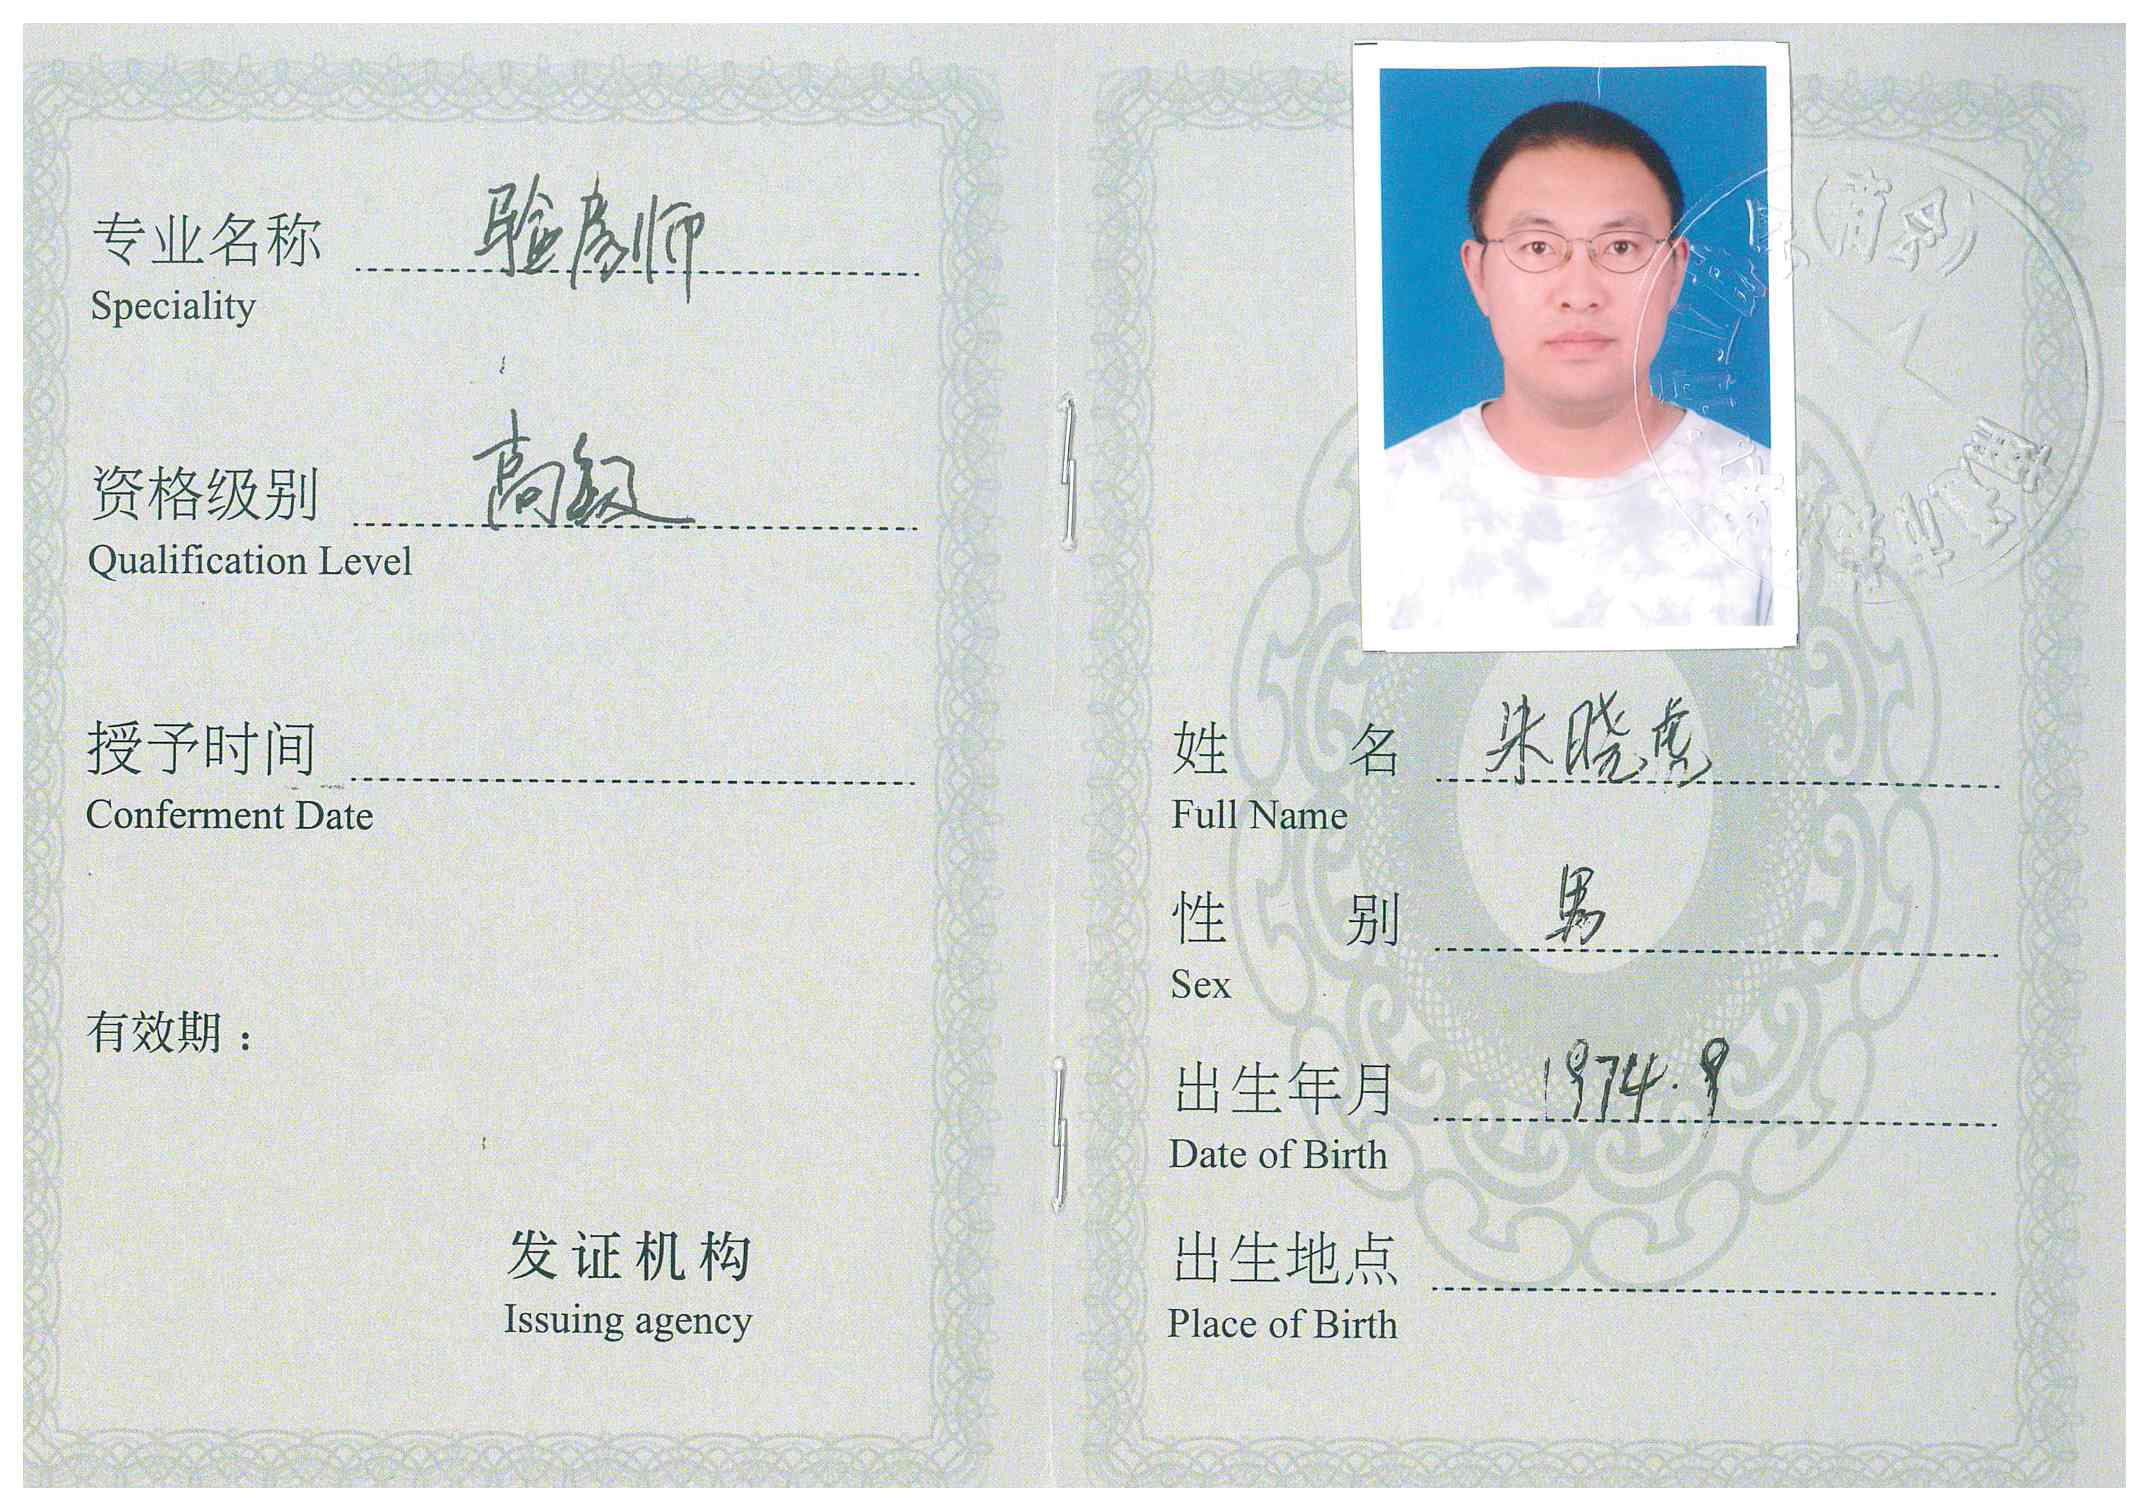 专业名称 验房师
Speciality
资格级别 高级
Qualification Level
授予时间
Conferment Date
有效期：
发证机构
Issuing agency
姓名 朱晓虎
Full Name
性别 男
Sex
出生年月 1974.9
Date of Birth
出生地点
Place of Birth